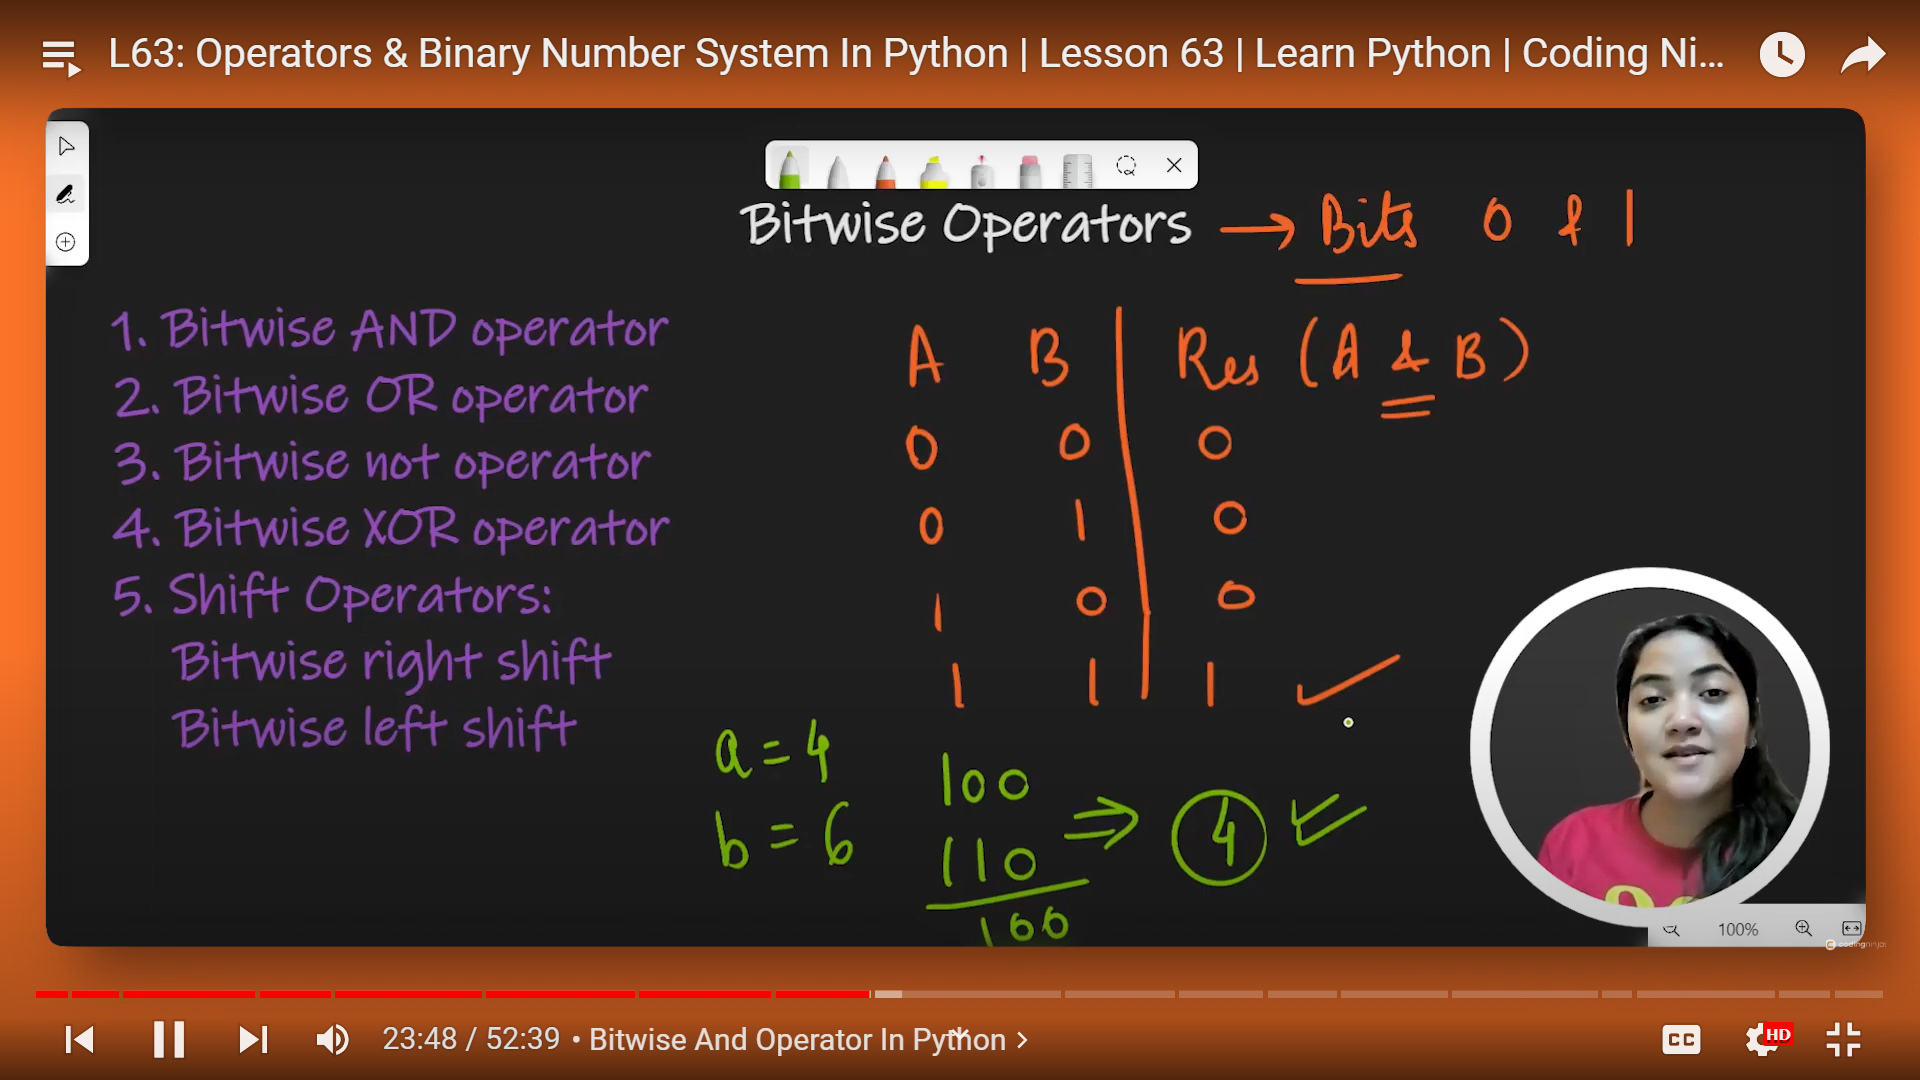 L63: Operators & Binary Number System In Python | Lesson 63 | Learn Python | Coding Ni...
Bitwise Operators → Bits 0 & 1
1. Bitwise AND operator
2. Bitwise OR operator
3. Bitwise not operator
4. Bitwise XOR operator
5. Shift Operators:
Bitwise right shift
Bitwise left shift
A B Res (A & B)
0 0 0
0 1 0
1 0 0
1 1 1
a = 4
b = 6
100
110 ⇒ 4
100
100%
codingninjas
23:48 / 52:39 • Bitwise And Operator In Python >
CC
HD